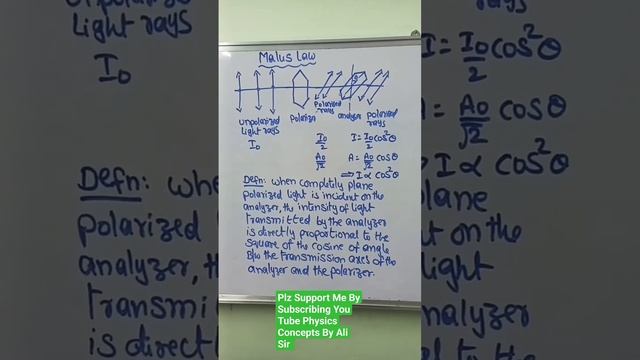 Malus Law
unpolarized
Light rays
I₀
Polarizer
Polarized
rays
analyzer
polarized
rays
I₀/2
I = I₀/2 cos²θ
A₀/√2
A = A₀/√2 cosθ
⇒ I ∝ cos²θ
Defn: when completly plane
polarized light is incident on the
analyzer, the intensity of light
transmitted by the analyzer
is directly proportional to the
square of the cosine of angle
B/w the transmission axes of the
analyzer and the polarizer.
Plz Support Me By
Subscribing You
Tube Physics
Concepts By Ali
Sir